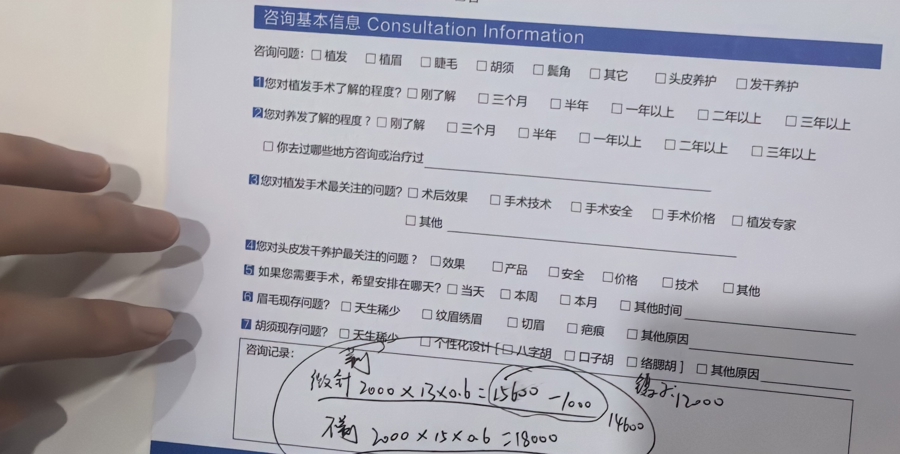 咨询基本信息 Consultation Information
咨询问题: □ 植发 □ 植眉 □ 睫毛 □ 胡须 □ 鬓角 □ 其它 □ 头皮养护 □ 发干养护
1 您对植发手术了解的程度? □ 刚了解 □ 三个月 □ 半年 □ 一年以上 □ 二年以上 □ 三年以上
2 您对养发了解的程度? □ 刚了解 □ 三个月 □ 半年 □ 一年以上 □ 二年以上 □ 三年以上
□ 你去过哪些地方咨询或治疗过
3 您对植发手术最关注的问题? □ 术后效果 □ 手术技术 □ 手术安全 □ 手术价格 □ 植发专家
□ 其他
4 您对头皮发干养护最关注的问题? □ 效果 □ 产品 □ 安全 □ 价格 □ 技术 □ 其他
5 如果您需要手术，希望安排在哪天? □ 当天 □ 本周 □ 本月 □ 其他时间
6 眉毛现存问题? □ 天生稀少 □ 纹眉绣眉 □ 切眉 □ 疤痕 □ 其他原因
7 胡须现存问题? □ 天生稀少 □ 个性化设计 [ □ 八字胡 □ 口子胡 □ 络腮胡 ] □ 其他原因
咨询记录:
剃
微针 2000×13×0.6=15600 -1000
12000
14600
不剃 2000×15×0.6=18000